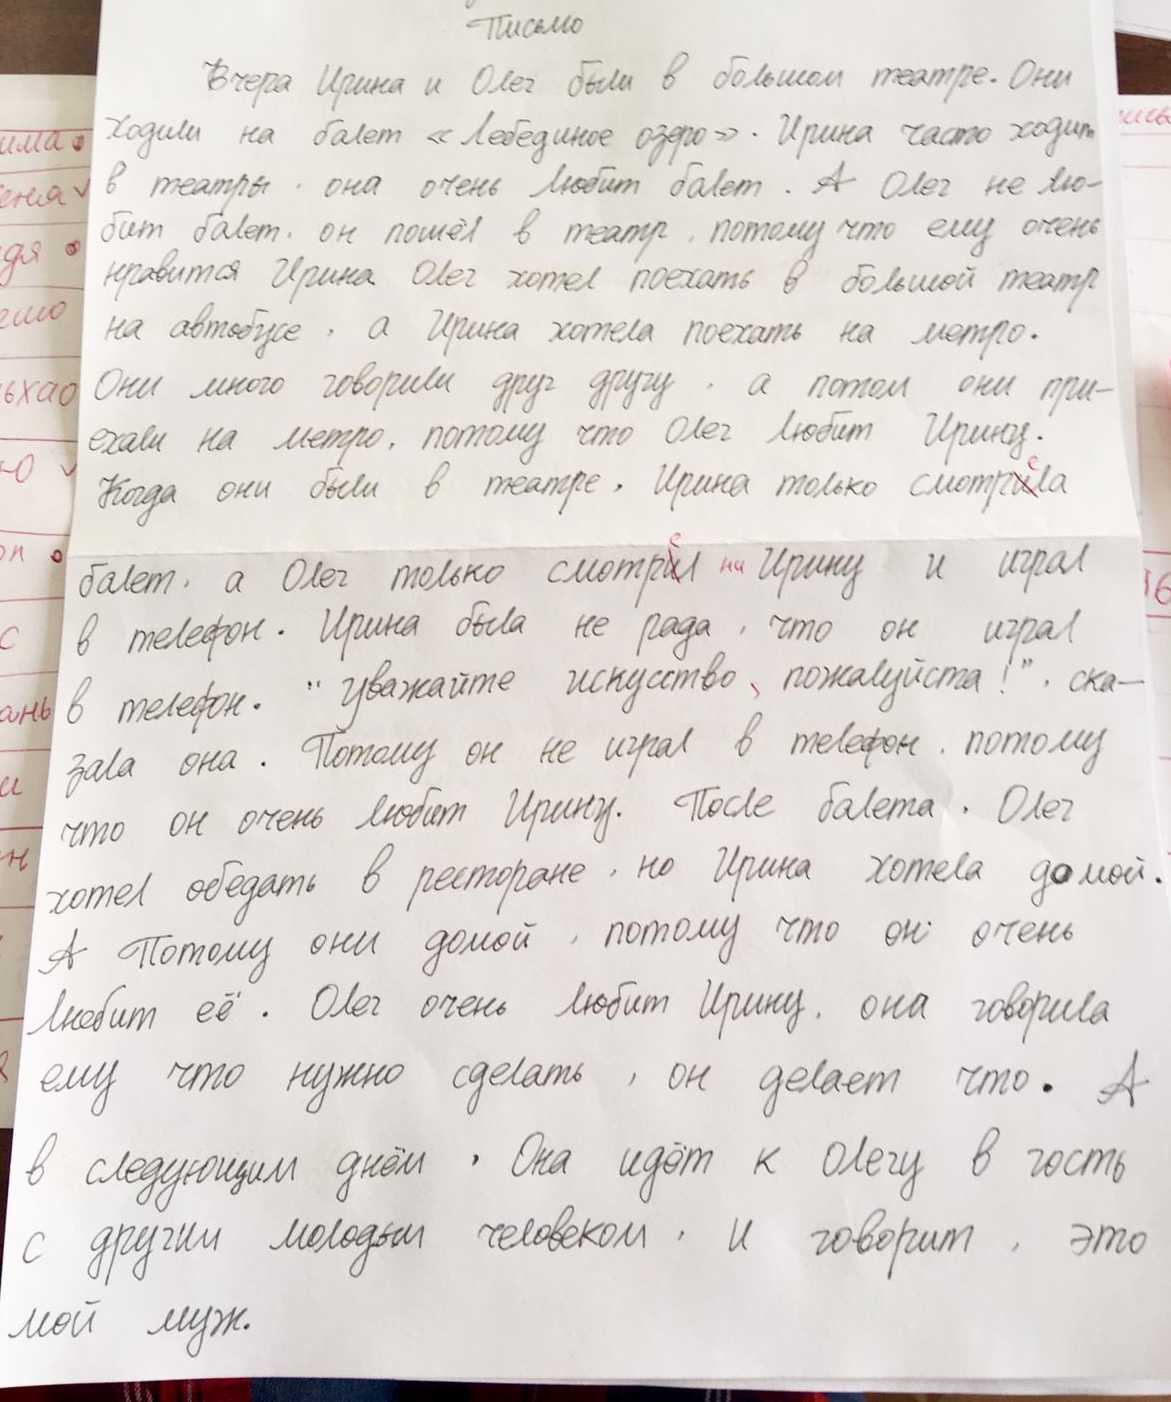 Письмо
Вчера Ирина и Олег были в большом театре. Они
ходили на балет «Лебединое озеро». Ирина часто ходит
в театры, она очень любит балет. А Олег не лю-
бит балет, он пошёл в театр, потому что ему очень
нравится Ирина Олег хотел поехать в большой театр
на автобусе, а Ирина хотела поехать на метро.
Они много говорили друг другу, а потом они при-
ехали на метро, потому что Олег любит Ирину.
Когда они были в театре, Ирина только смотрела
балет, а Олег только смотрел на Ирину и играл
в телефон. Ирина была не рада, что он играл
в телефон. "уважайте искусство, пожалуйста!", ска-
зала она. Потому он не играл в телефон, потому
что он очень любит Ирину. После балета, Олег
хотел обедать в ресторане, но Ирина хотела домой.
А Потому они домой, потому что он очень
любит её. Олег очень любит Ирину, она говорила
ему что нужно сделать, он делает что. А
в следующим днём, Она идёт к Олегу в гость
с другим молодым человеком, и говорит, это
мой муж.